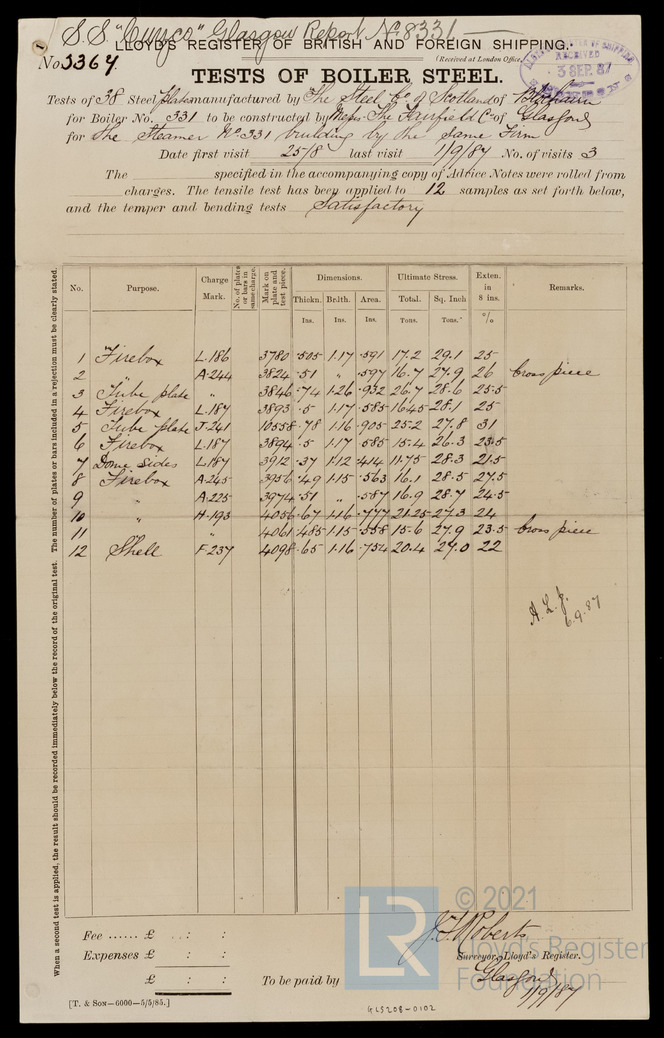 S.S "Cuzco" Glasgow Report No 8331
LLOYD'S REGISTER OF BRITISH AND FOREIGN SHIPPING.
No 3364.
(Received at London Office,
RECEIVED
3 SEP. 87
TESTS OF BOILER STEEL.
Tests of 38 Steel plates manufactured by The Steel Co of Scotland of
for Boiler No. 331 to be constructed by Messrs The Fairfield Co of Glasgow
for the Steamer No 331 building by the same Firm
Date first visit 25/8 last visit 1/9/87 No. of visits 3
The specified in the accompanying copy of Advice Notes were rolled from
charges. The tensile test has been applied to 12 samples as set forth below,
and the temper and bending tests Satisfactory
No. Purpose. Charge Mark. No. of plates or bars in same charge. Mark on plate and test piece. Dimensions. Ultimate Stress. Exten. in 8 ins. Remarks.
Thickn. Brdth. Area. Total. Sq. Inch
Ins. Ins. Ins. Tons. Tons. %
1 Firebox L.186 3780 .505 1.17 .591 17.2 29.1 25
2 " A.244 3824 .51 " .597 16.7 27.9 26 Cross piece
3 Tube plate " 3846 .74 1.26 .932 26.7 28.6 25.5
4 Firebox L.187 3893 .5 1.17 .585 16.45 28.1 25
5 Tube plate J.241 10558 .78 1.16 .905 25.2 27.8 31
6 Firebox L.187 3894 .5 1.17 585 15.4 26.3 23.5
7 Dome Sides L.187 3912 .37 1.12 .414 11.75 28.3 21.5
8 Firebox A.245 3956 .49 1.15 .563 16.1 28.5 27.5
9 " A.225 3974 .51 " .587 16.9 28.7 24.5
10 " H.193 4056 .67 1.16 .777 21.25 27.3 24
11 " 4061 .485 1.15 .558 15.6 27.9 23.5 Cross piece
12 Shell F.237 4098 .65 1.16 .754 20.4 27.0 22
6.9.87
When a second test is applied, the result should be recorded immediately below the record of the original test. The number of plates or bars included in a rejection must be clearly stated.
Fee ...... £ : :
Expenses £ : :
£ : :
To be paid by
J. T. Roberts
Surveyor, Lloyd's Register.
Glasgow
1/9/87
[T. & SON—6000—5/5/85.]
GLS208-0102
LR
© 2021
Lloyd's Register
Foundation